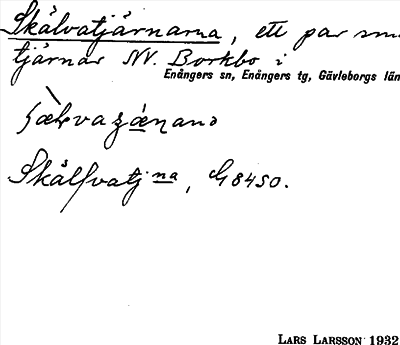 Skälvatjärnarna, ett par små
tjärnar NV. Borkbo i
Enångers sn, Enångers tg, Gävleborgs län
Skälfvatj na, G8450.
LARS LARSSON 1932